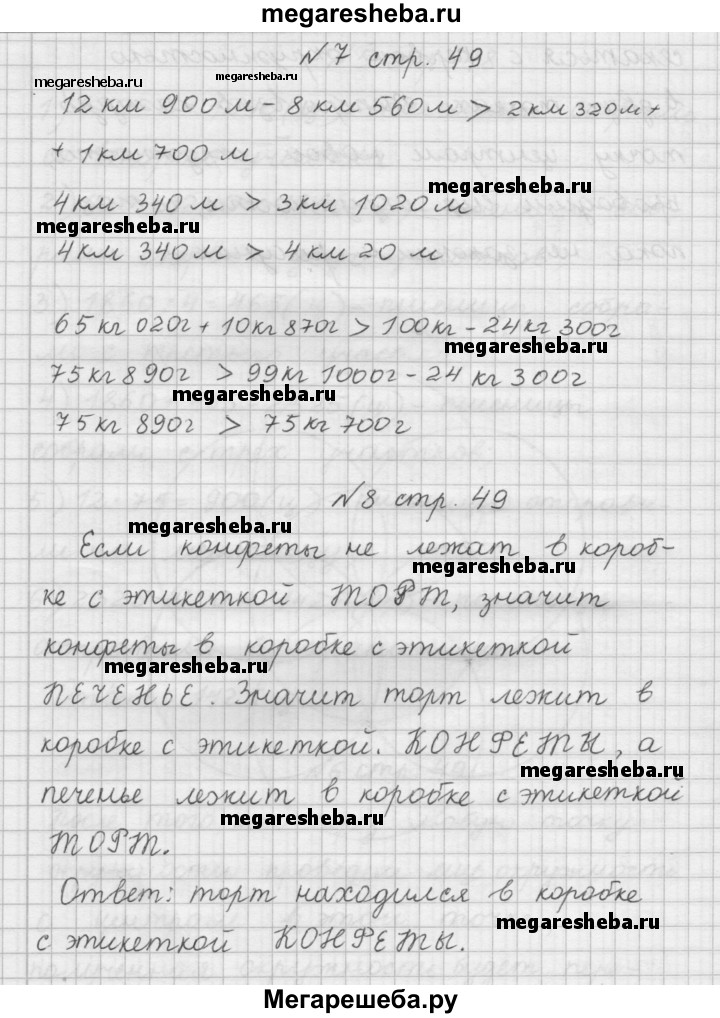 megaresheba.ru
№7 стр. 49
megaresheba.ru megaresheba.ru
12 км 900 м - 8 км 560 м > 2 км 320 м +
+ 1 км 700 м
megaresheba.ru
4 км 340 м > 3 км 1020 м
megaresheba.ru
4 км 340 м > 4 км 20 м
65 кг 020 г + 10 кг 870 г > 100 кг - 24 кг 300 г
megaresheba.ru
75 кг 890 г > 99 кг 1000 г - 24 кг 300 г
megaresheba.ru
75 кг 890 г > 75 кг 700 г
№8 стр. 49
megaresheba.ru
Если конфеты не лежат в короб-
megaresheba.ru
ке с этикеткой ТОРТ, значит
конфеты в коробке с этикеткой
megaresheba.ru
ПЕЧЕНЬЕ. Значит торт лежит в
коробке с этикеткой. КОНФЕТЫ, а
megaresheba.ru
печенье лежит в коробке с этикеткой
megaresheba.ru
ТОРТ.
Ответ: торт находился в коробке
megaresheba.ru
с этикеткой КОНФЕТЫ.
Мегарешеба.ру